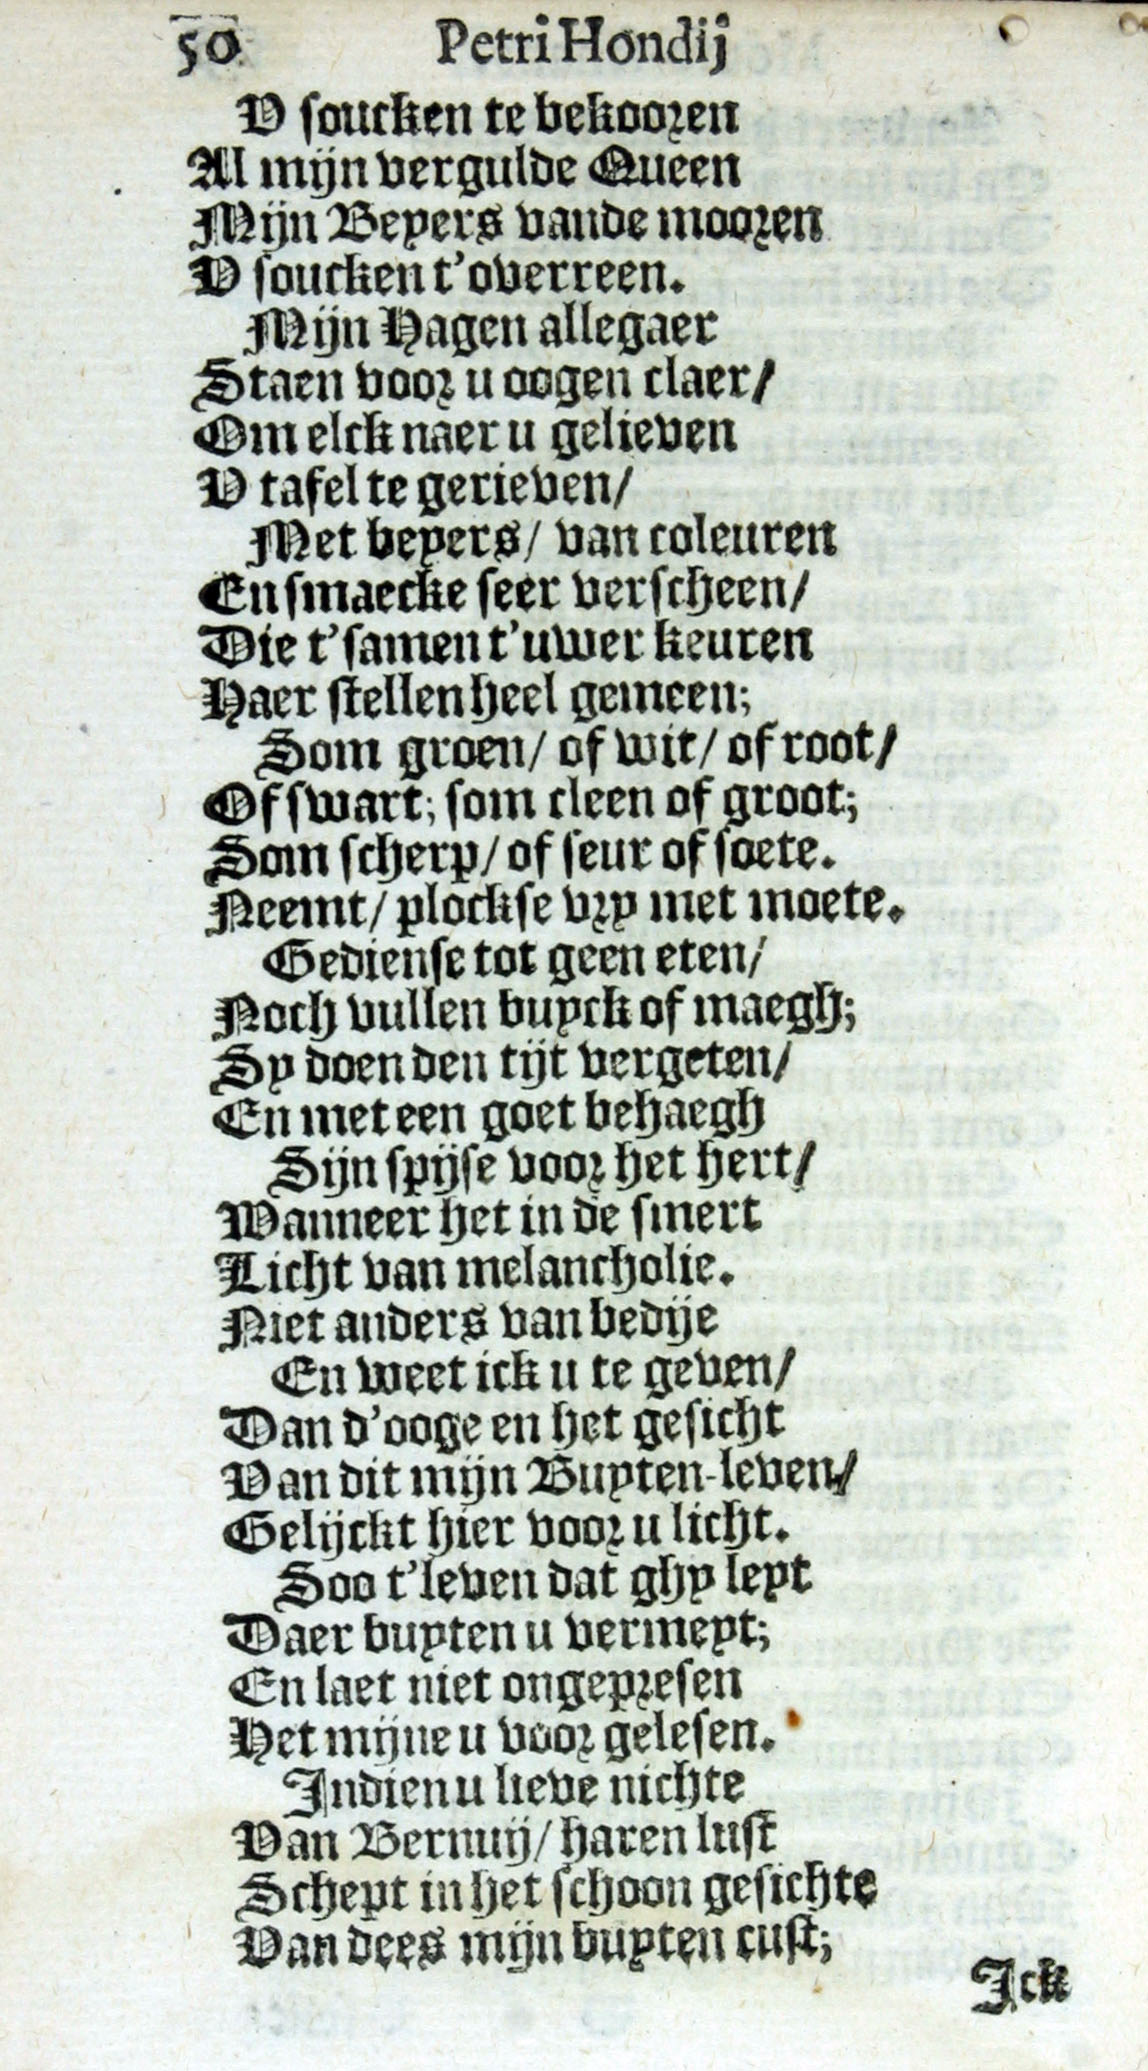 50 Petri Hondij
V soucken te bekooren
Al mijn vergulde Queen
Mijn Beyers vande mooren
V soucken t'overreen.
Mijn Hagen allegaer
Staen voor u oogen claer/
Om elck naer u gelieven
V tafel te gerieven/
Met beyers/ van coleuren
En smaecke seer verscheen/
Die t'samen t'uwer keuren
Haer stellen heel gemeen;
Som groen/ of wit/ of root/
Of swart; som cleen of groot;
Som scherp/ of seur of soete.
Neemt/ plockse vry met moete.
Gediense tot geen eten/
Noch vullen buyck of maegh;
Sy doen den tijt vergeten/
En met een goet behaegh
Sijn spijse voor het hert/
Wanneer het in de smert
Licht van melancholie.
Niet anders van bedije
En weet ick u te geven/
Dan d'ooge en het gesicht
Van dit mijn Buyten-leven/
Gelijckt hier voor u licht.
Soo t'leven dat ghy leyt
Daer buyten u vermeyt;
En laet niet ongepresen
Het mijne u voor gelesen.
Indien u lieve nichte
Van Bernuij/ haren lust
Schept in het schoon gesichte
Van dees mijn buyten cust;
Ick